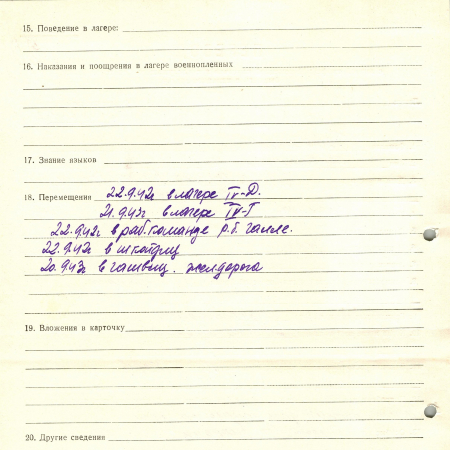 15. Поведение в лагере:
16. Наказания и поощрения в лагере военнопленных
17. Знание языков
18. Перемещения 22.9.42г в лагере IV-Д.
21.9.43г в лагере IV-Г
22.9.42г. в раб.команде р.б. галле.
22.9.42г в шкойдиц
20.9.43г в желдорога
19. Вложения в карточку
20. Другие сведения